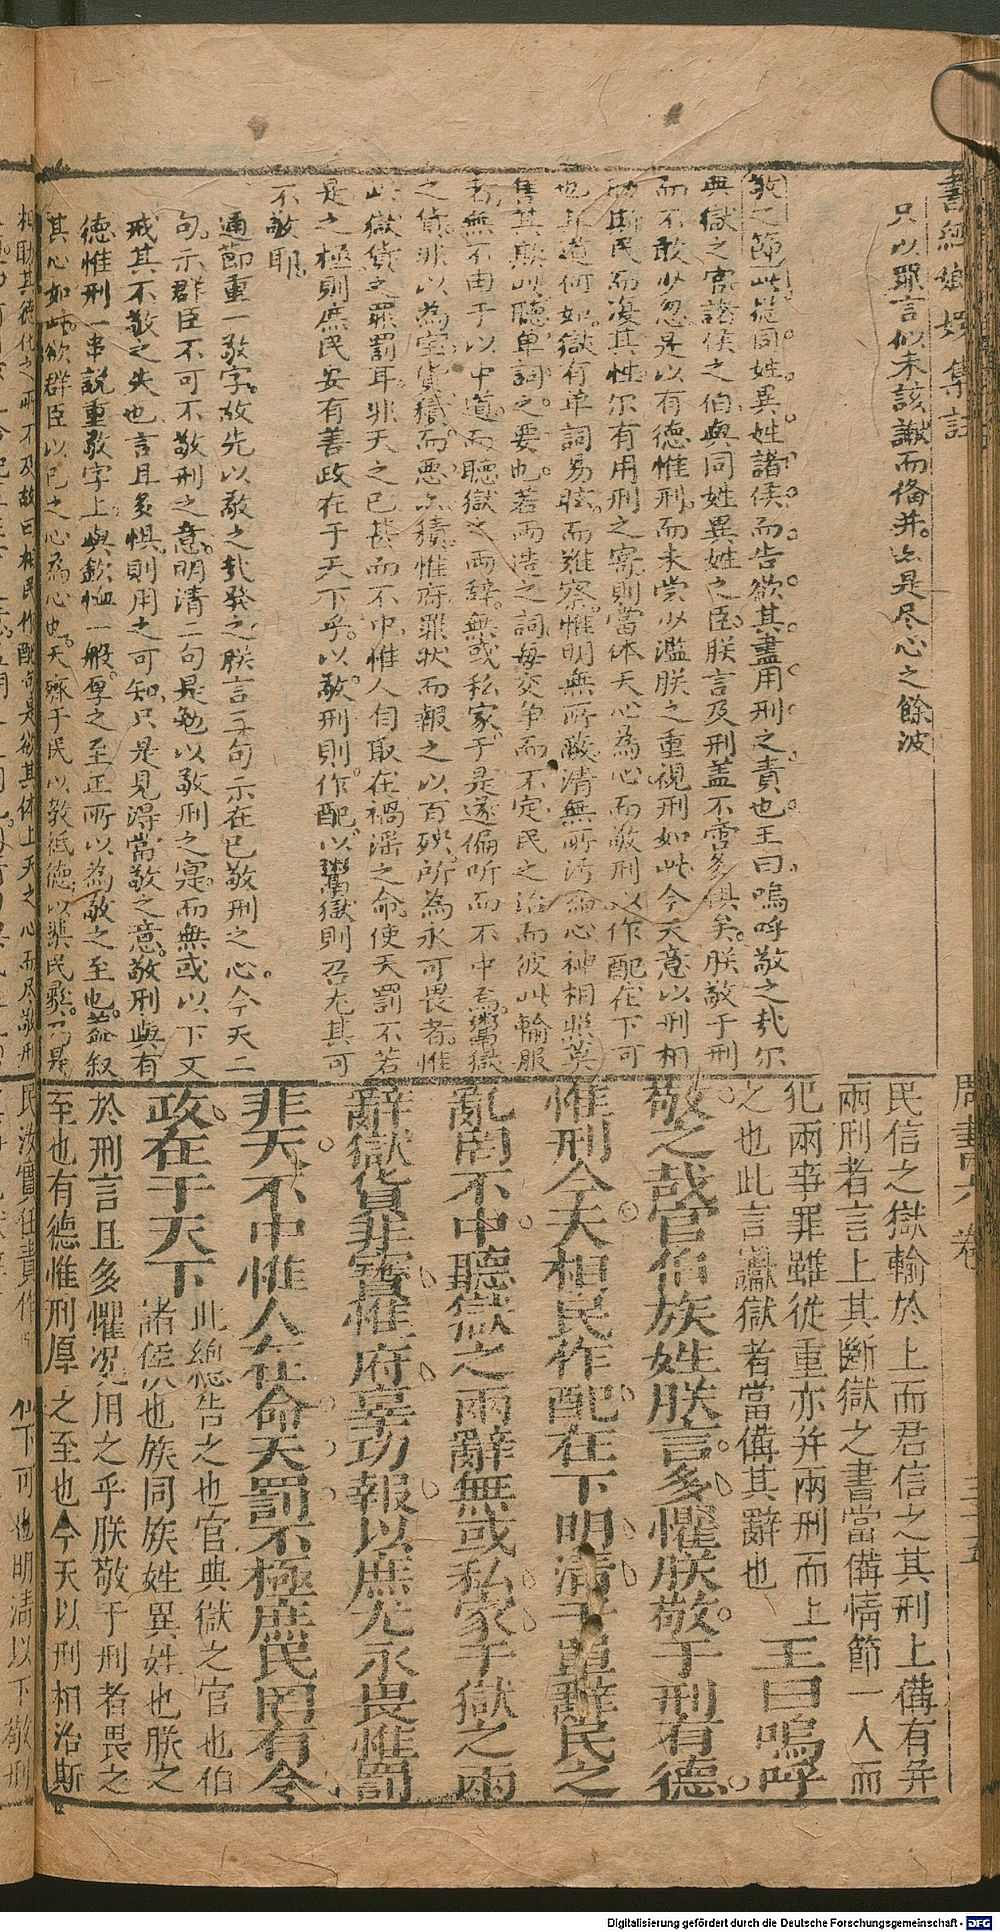 書經
集註
只以罪言似未該讞而備并亦是尽心之餘波
敬之節此從同姓異姓諸侯而告欲其盡用刑之責也王曰嗚呼敬之哉尔
典獄之官諸侯之伯與同姓異姓之臣朕言及刑盖不啻多惧矣朕敬于刑
而不敢少忽是以有德惟刑而未尝少濫朕之重視刑如此今天意以刑相
斯民而復其性尔有用刑之寄則當体天心為心而敬刑以作配在下可
也其道何如獄有单詞易眩而難察惟明無所蔽清無所污心神相照莫
售其欺以聽单詞之要也若两造之詞每交争而不定民之治而彼此輸服
者無不由于以中道而聽獄之两辞無或私家于是遂偏听而不中焉鬻獄
之貨非以為宝貨積而恶亦積惟府罪状而報之以百殃所為永可畏者惟
此獄貨之罪罰耳非天之已甚而不中惟人自取在禍淫之命使天罰不若
是之極則庶民安有善政在于天下乎以敬刑則作配以鬻獄則召尤其可
不敬耶
通節重一敬字故先以敬之哉発之朕言三句示在已敬刑之心今天二
句示群臣不可不敬刑之意明清二句是勉以敬刑之寔而無或以下又
戒其不敬之失也言且多惧則用之可知只是見得當敬之意敬刑與有
德惟刑一串説重敬字上與欽恤一般厚之至正所以為敬之至也盖叙
其心如此欲群臣以已之心為心也天殊于民以教祗德以
周書六卷
民信之獄輸於上而君信之其刑上備有并
兩刑者言上其斷獄之書當備情節一人而
犯兩事罪雖從重亦并兩刑而上
之也此言讞獄者當備其辭也
王曰嗚呼
敬之哉官伯族姓朕言多懼朕敬于刑有德
惟刑今天相民作配在下明清于單辭民之
亂罔不中聽獄之兩辭無或私家于獄之兩
辭獄貨非寶惟府辜功報以庶尤永畏惟罰
非天不中惟人在命天罰不極庶民罔有令
政在于天下
此總告之也官典獄之官也伯
諸侯也族同族姓異姓也朕之
於刑言且多懼况用之乎朕敬于刑者畏之
至也有德惟刑厚之至也今天以刑相治斯
民汝實任責作
可也明清以下敬刑
Digitalisierung gefördert durch die Deutsche Forschungsgemeinschaft - DFG